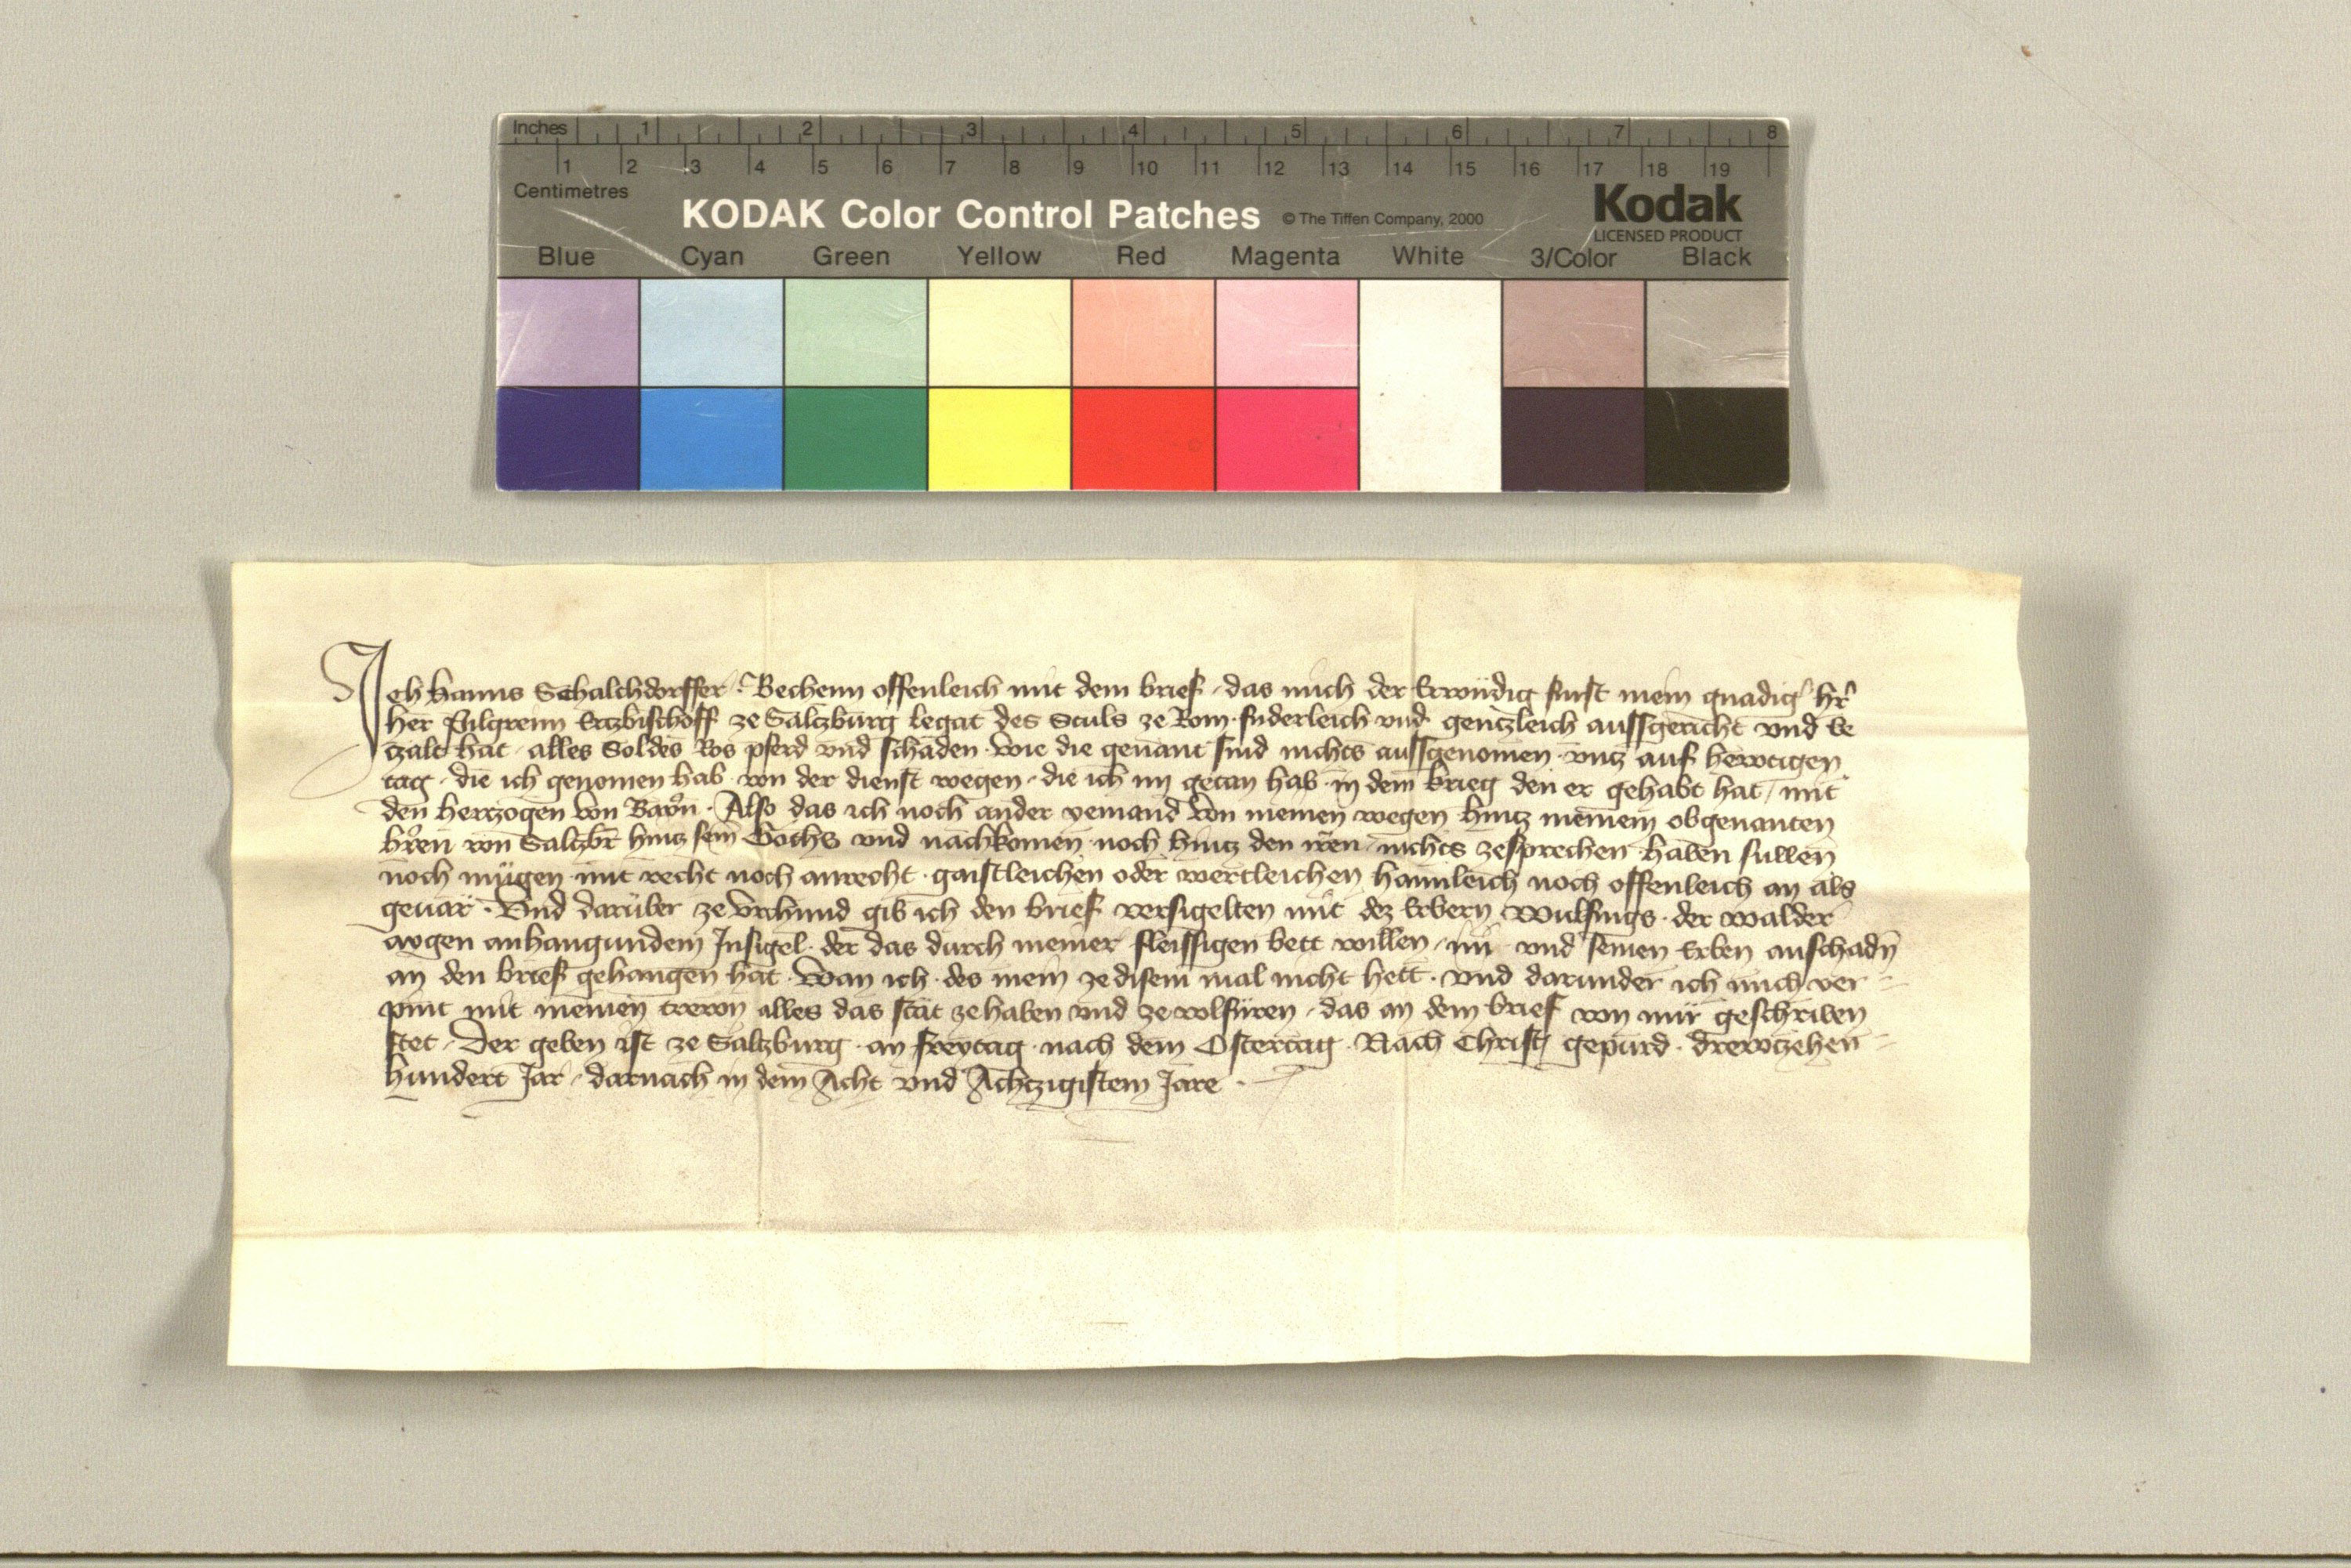 Inches 1 2 3 4 5 6 7 8
1 2 3 4 5 6 7 8 9 10 11 12 13 14 15 16 17 18 19
Centimetres
KODAK Color Control Patches © The Tiffen Company, 2000 Kodak
LICENSED PRODUCT
Blue Cyan Green Yellow Red Magenta White 3/Color Black
Ich Hanns Schalchdorffer · Bechenn offenleich mit dem brief · das mich der Erwirdig furst mein gnadig' h'r
her Pilgreim Ertzbischoff ze Saltzburg legat des Stuls ze Rom · fuderleich vnd gentzleich aussgericht vnd be
tzalt hat · alles Soldes Ros pferd vnd schaden · wie die genant sind nichts aussgenomen · vntz auf hewtigen
tag · die ich genomen hab · von der dienst wegen · die ich im getan hab · in dem krieg den er gehabt hat / mit
den hertzogen von Bairn · Also das ich noch ander yemand von meinen wegen hintz meinem obgenanten
h'ren von Saltzbr hintz seim Goths vnd nachkomen noch hintz den iren · nichts zesprechen haben sullen
noch mügen · mit recht noch anrecht · gaistleichen oder wertleichen haimleich noch offenleich an als
geuär · Vnd darüber ze vrchund gib ich den brief versigelten mit dez Erbern Wulfings · der Walder
aygen anhangundem Insigel · der das durch meiner fleissigen bett willen · im vnd seinen Erben anschadn
an den brief gehangen hat · Wan ich · des mein ze disem mal nicht hett · vnd darunder ich mich ver
pint mit meinen trewn alles das stät ze haben vnd ze volfüren · das an dem brief von mir geschriben
stet · Der geben ist ze Saltzburg · an freytag · nach dem Ostertag · Nach Christi gepurd · drewtzehen
hundert Jar · darnach in dem Acht vnd Achtzigistem Jare ·